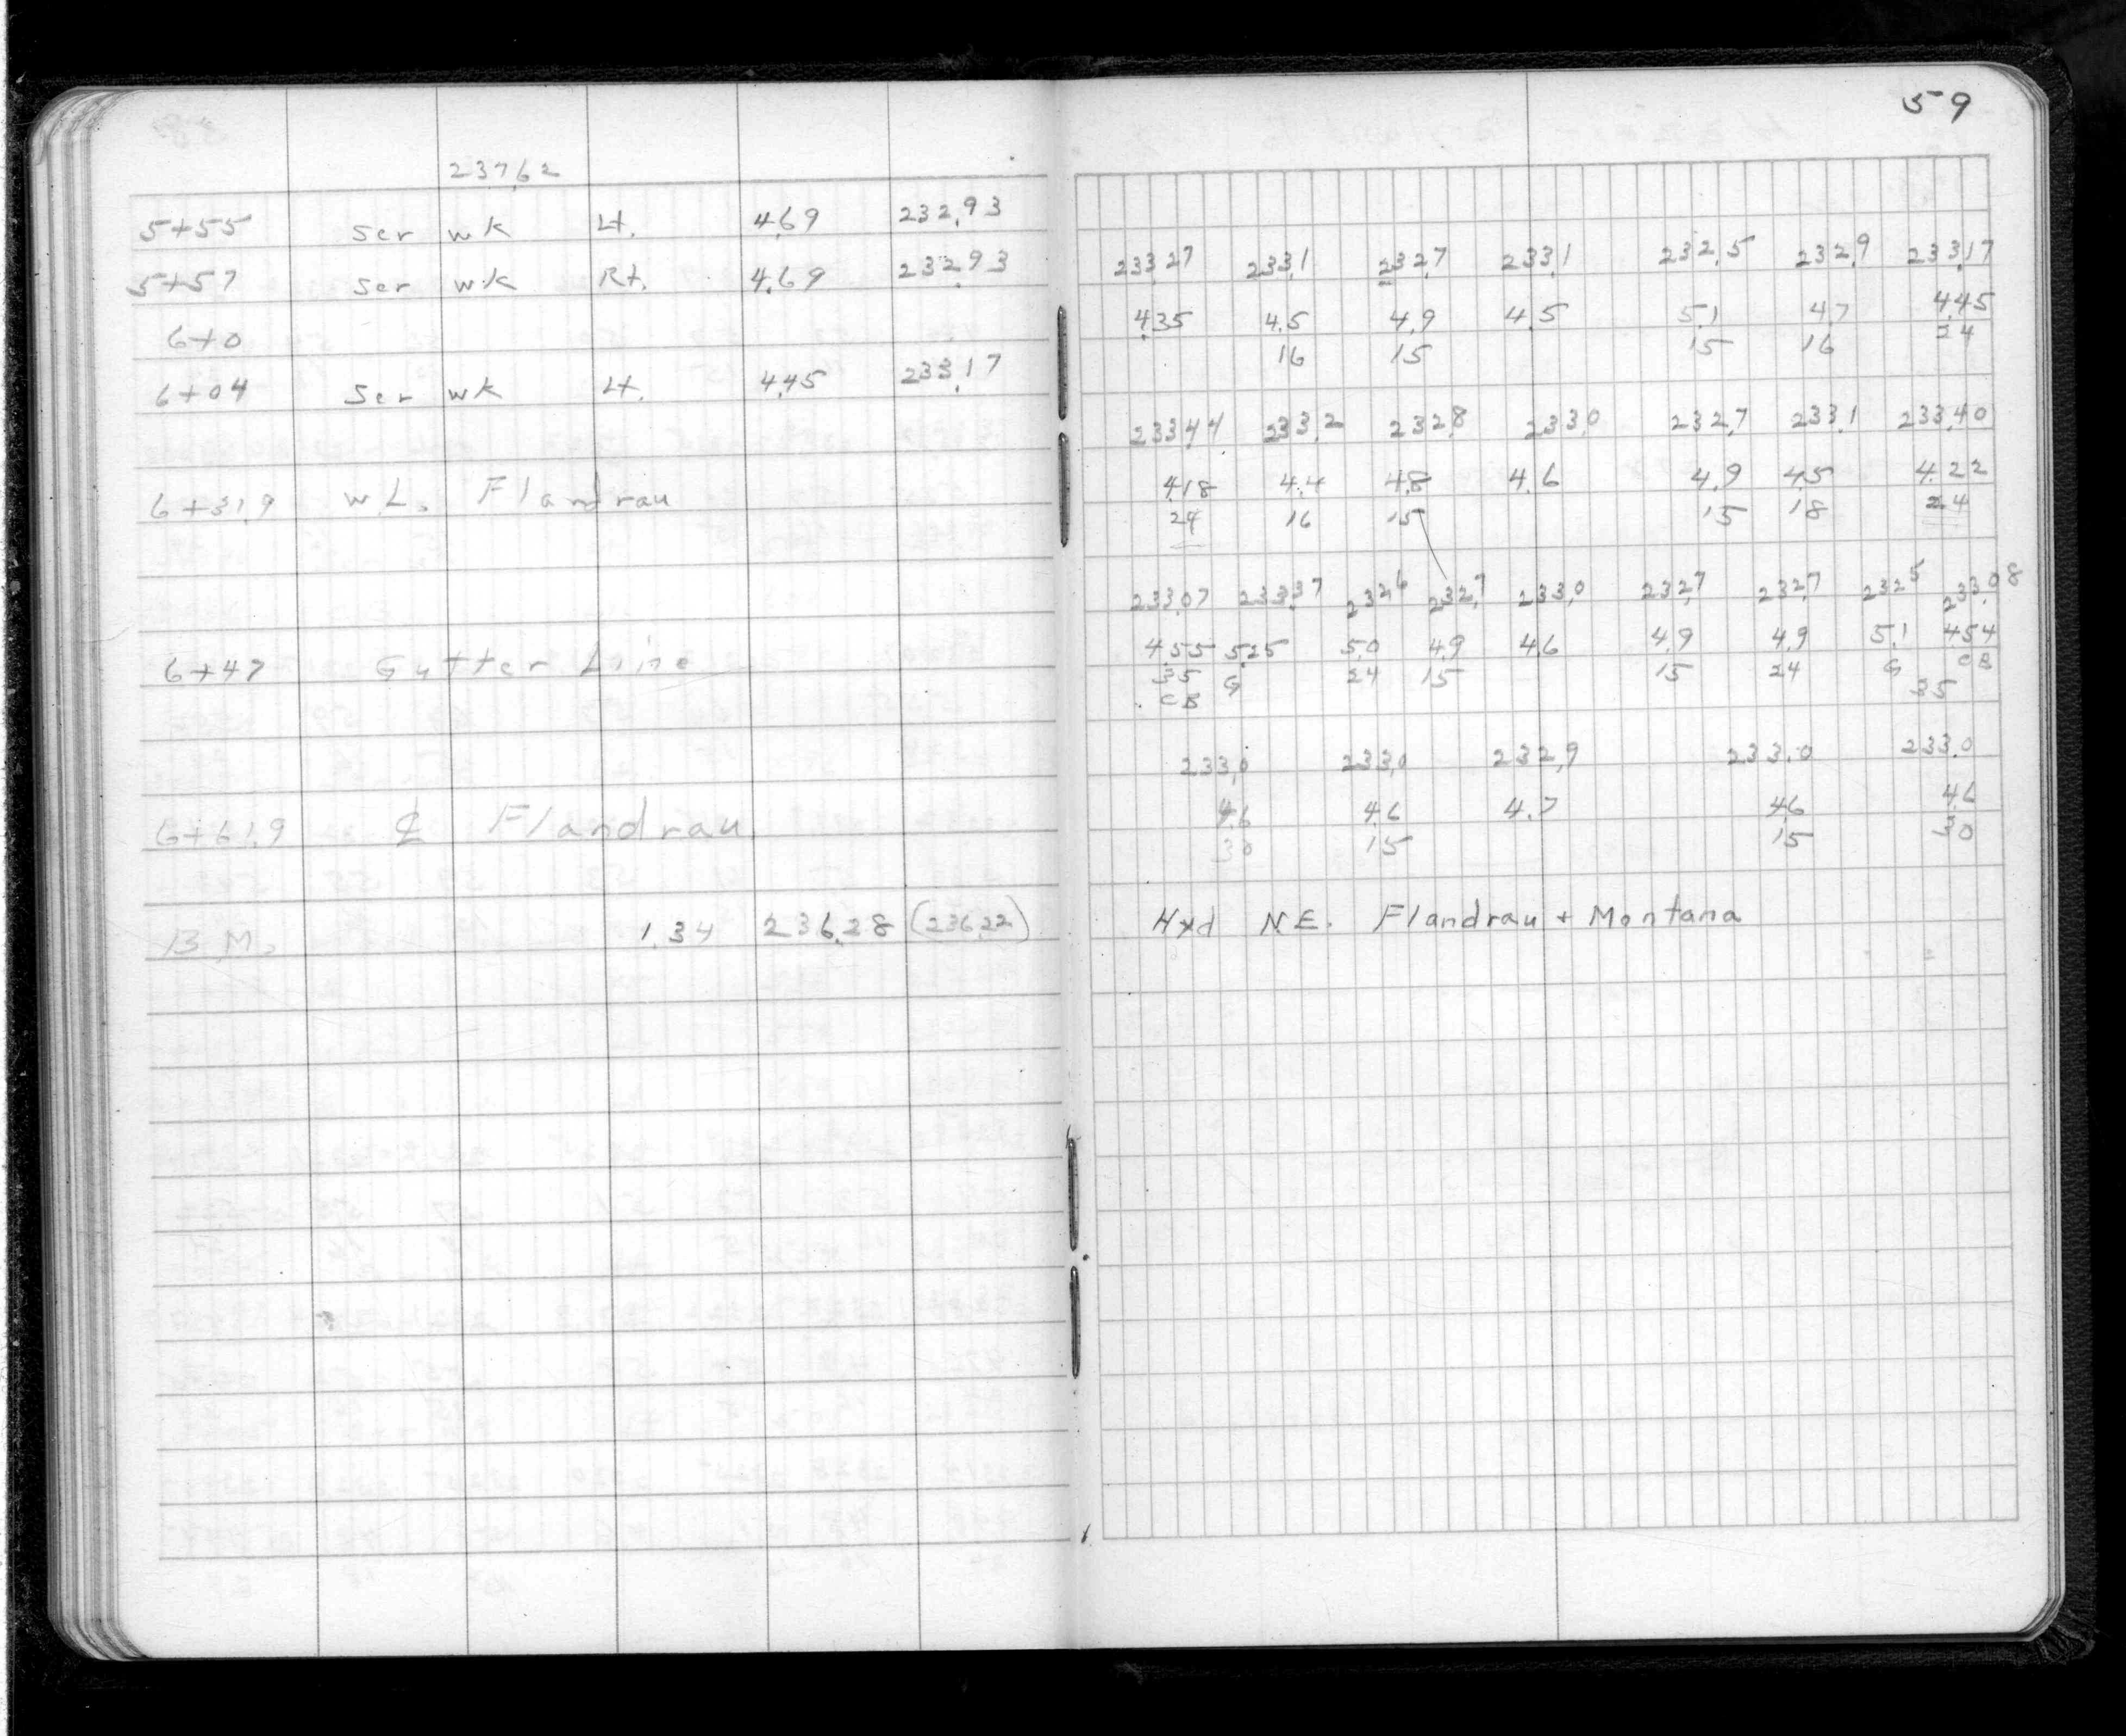 237.62
5+55 Ser wk Lt. 4.69 232.93
5+57 Ser wk Rt. 4.69 232.93
6+0
6+04 Ser wk Lt. 4.45 233.17
6+31.9 W.L. Flandrau
6+47 Gutter Line
6+61.9 ℄ Flandrau
B.M. 1.34 236.28 (236.22)
59
233.27 233.1 232.7 233.1 232.5 232.9 233.17
4.35 4.5 4.9 4.5 5.1 4.7 4.45
16 15 15 16 24
233.44 233.2 232.8 233.0 232.7 233.1 233.40
4.18 4.4 4.8 4.6 4.9 4.5 4.22
24 16 15 15 18 24
233.07 232.37 232.6 232.7 233.0 232.7 232.7 232.5 233.08
4.55 5.25 5.0 4.9 4.6 4.9 4.9 5.1 4.54
35 G 24 15 15 24 G CB
CB 35
233.0 233.0 232.9 233.0 233.0
4.6 4.6 4.7 4.6 4.6
30 15 15 30
Hyd N.E. Flandrau + Montana